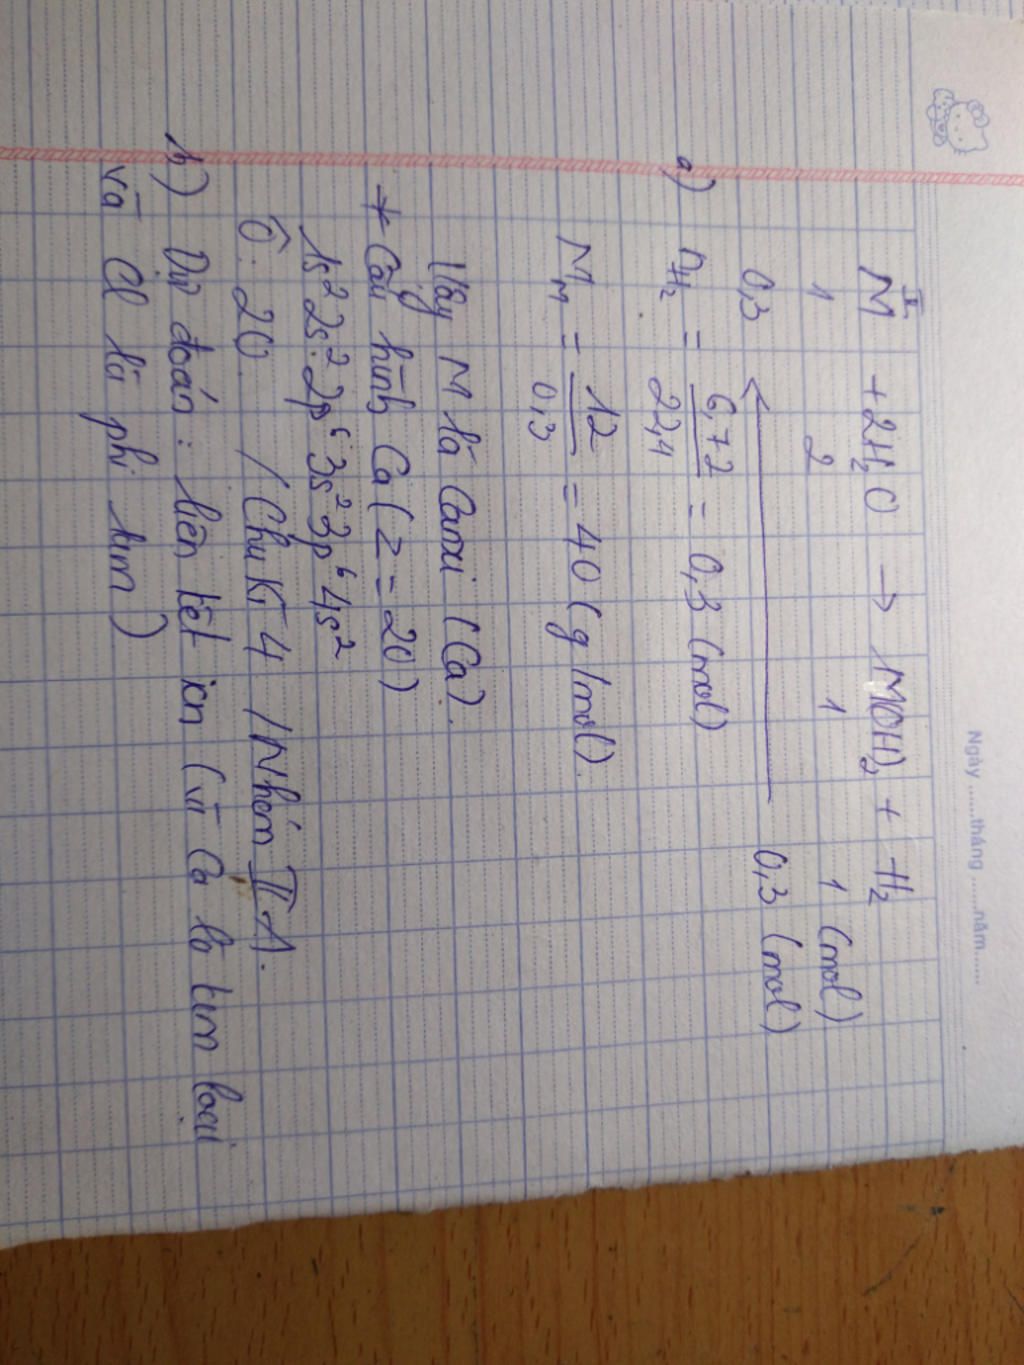 Ngày ......tháng ......năm......
II
M + 2H₂O → M(OH)₂ + H₂
1 2 1 1 (mol)
0,3 ← 0,3 (mol)
a) nH₂ = 6,72 / 22,4 = 0,3 (mol)
M_M = 12 / 0,3 = 40 (g/mol).
Vậy M là Canxi (Ca).
* Cấu hình Ca (Z = 20)
1s² 2s² 2p⁶ 3s² 3p⁶ 4s²
Ô: 20. / Chu Kì 4 / Nhóm IIA.
b) Dự đoán: liên kết ion (vì Ca là kim loại
và Cl là phi kim)